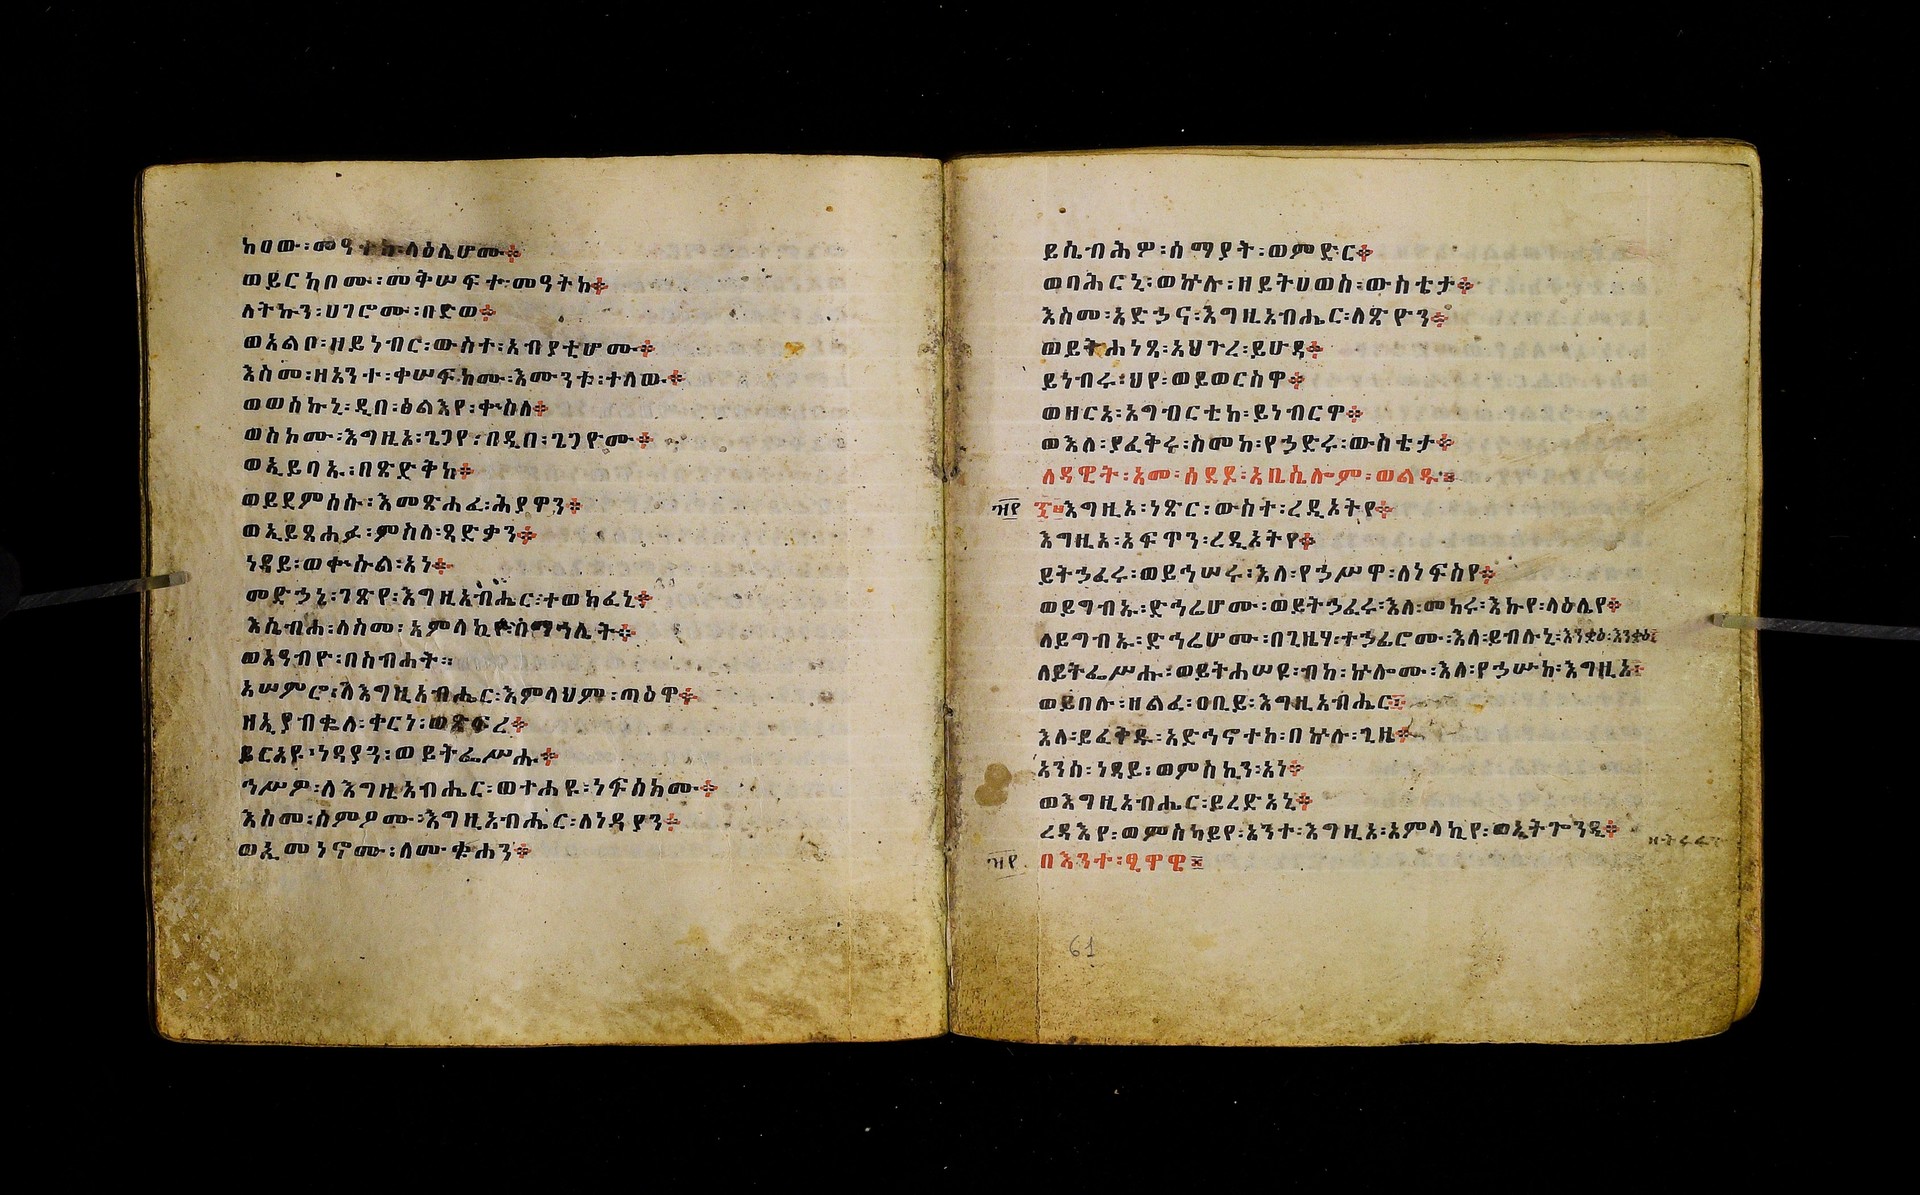 ከዐው፡መዓተከ፡ላዕሊሆሙ፨
ወይርከበሙ፡መቅሠፍተ፡መዓትከ፨
ለትኩን፡ሀገሮሙ፡በድወ፨
ወአልቦ፡ዘይነብር፡ውስተ፡አብያቲሆሙ፨
እስመ፡ዘአንተ፡ቀሠፍከሙ፡እሙንቱ፡ተለው፨
ወወስኩኒ፡ዲበ፡ፅልእየ፡ቍስለ፨
ወስከሙ፡እግዚአ፡ጌጋየ፡በዲበ፡ጌጋዮሙ፨
ወኢይባኡ፡በጽድቅከ፨
ወይደምሰሱ፡እመጽሐፈ፡ሕያዋን፨
ወኢይጸሐፉ፡ምስለ፡ጻድቃን፨
ነዳይ፡ወቍሱል፡አነ፨
መድኃኒ፡ገጽየ፡እግዚአብሔር፡ተወክፈኒ፨
እሴብሕ፡ለስመ፡አምላኪየ፡በማኅሌት፨
ወአዓብዮ፡በስብሐት።
አሠምሮ፡ለእግዚአብሔር፡እምላህም፡ጣዕዋ፨
ዘኢያብቈለ፡ቀርነ፡ወጽፍረ፨
ይርአዩ፡ነዳያን፡ወይትፌሥሑ፨
ኅሥዎ፡ለእግዚአብሔር፡ወተሐዩ፡ነፍስክሙ፨
እስመ፡ሰምዖሙ፡እግዚአብሔር፡ለነዳያን፨
ወኢመነኖሙ፡ለሙቁሐን፨
ይሴብሕዎ፡ሰማያት፡ወምድር፨
ወባሕርኒ፡ወኵሉ፡ዘይትሀወስ፡ውስቴታ፨
እስመ፡አድኃና፡እግዚአብሔር፡ለጽዮን፨
ወይትሐነጻ፡አህጉረ፡ይሁዳ፨
ይነብሩ፡ህየ፡ወይወርስዋ፨
ወዘርአ፡አግብርቲከ፡ይነብርዋ፨
ወእለ፡ያፈቅሩ፡ስመከ፡የኃድሩ፡ውስቴታ፨
ለዳዊት፡አመ፡ሰደዶ፡አቤሴሎም፡ወልዱ፡፡
እግዚአ፡ነጽር፡ውስተ፡ረዲኦትየ፨
እግዚአ፡አፍጥን፡ረዲኦትየ፨
ይትኃፈሩ፡ወይኅሠሩ፡እለ፡የኃሥዋ፡ለነፍስየ፨
ወይግብኡ፡ድኅሬሆሙ፡ወይትኃፈሩ፡እለ፡መከሩ፡እኩየ፡ላዕሌየ፨
ለይግብኡ፡ድኅሬሆሙ፡በጊዜሃ፡ተኃፊሮሙ፡እለ፡ይብሉኒ፡እንቋዕ፡እንቋዕ፨
ለይትፌሥሑ፡ወይትሐሠዩ፡ብከ፡ኵሎሙ፡እለ፡የኃሡከ፡እግዚአ፡
ወይበሉ፡ዘልፈ፡ዐቢይ፡እግዚአብሔር፨
እለ፡ይፈቅዱ፡አድኅኖተከ፡በኵሉ፡ጊዜ፨
አንሰ፡ነዳይ፡ወምስኪን፡አነ፨
ወእግዚአብሔር፡ይረድአኒ፨
ረዳእየ፡ወምስካይየ፡አንተ፡እግዚአ፡አምላኪየ፡ወኢትጐንዲ፨
በእንተ፡ፂዋዊ፨
61